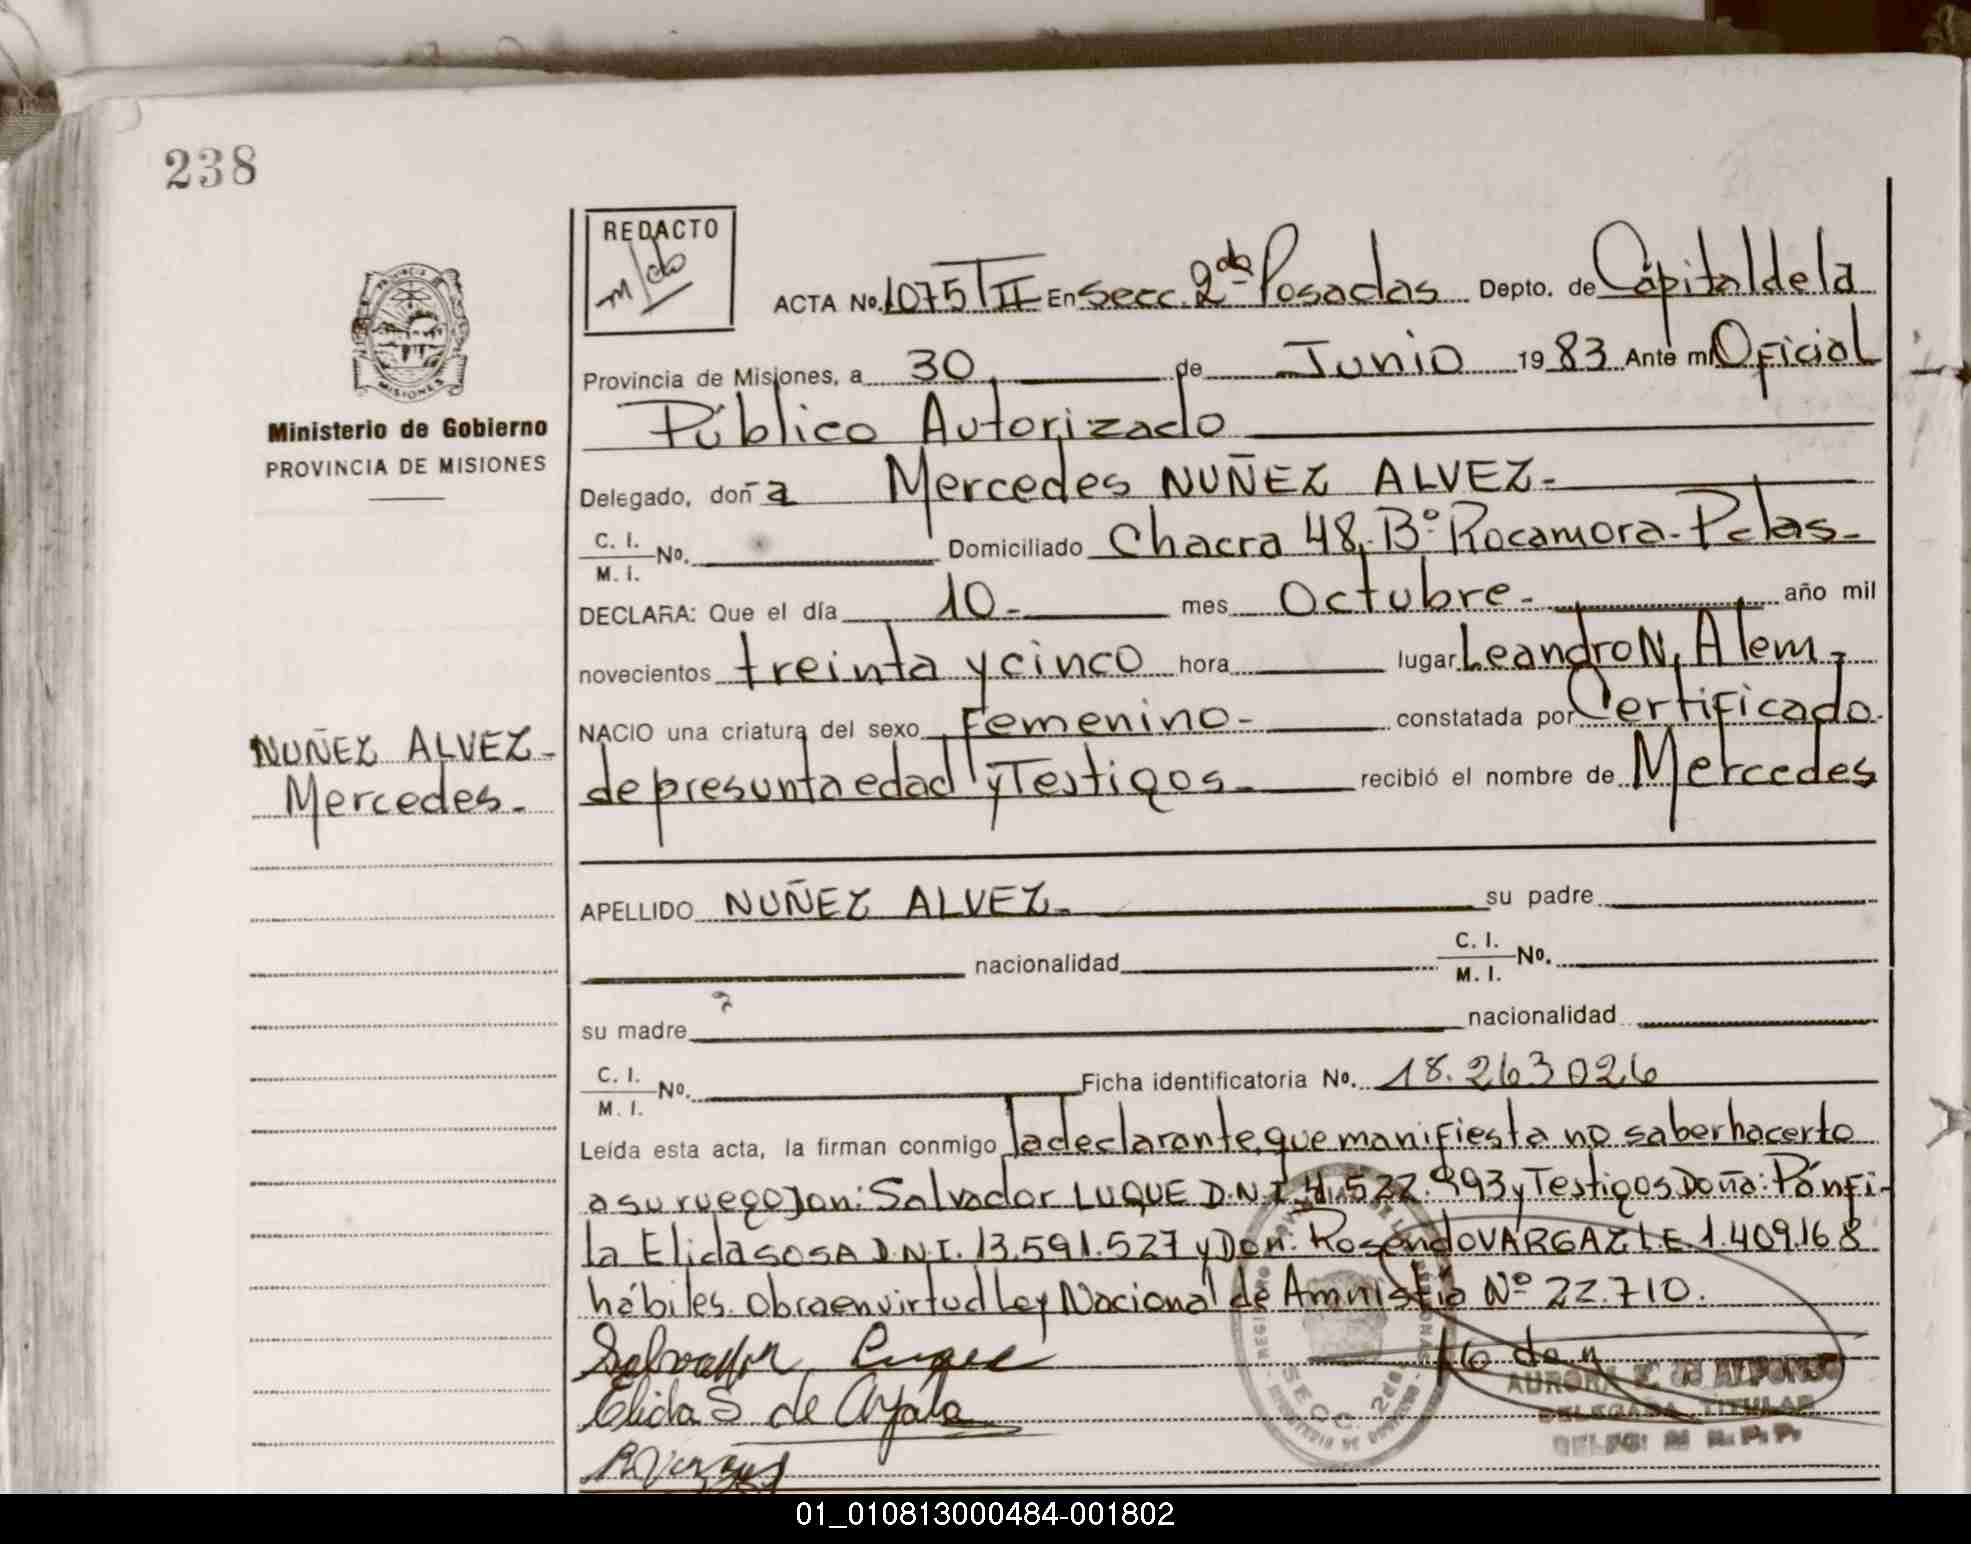 238
REDACTO
PROVINCIA DE
MISIONES
ACTA No. 1075 T II En Secc. 2da Posadas Depto. de Capital de la
Provincia de Misiones, a 30 de Junio 1983 Ante mí Oficial
Ministerio de Gobierno
PROVINCIA DE MISIONES
Público Autorizado
Delegado, doña Mercedes NUÑEZ ALVEZ-
C. I.
M. I. No. Domiciliado Chacra 48,-Bº Rocamora- Pdas-
DECLARA: Que el día 10- mes Octubre- año mil
novecientos treinta y cinco hora lugar Leandro N, Alem-
NACIO una criatura del sexo Femenino- constatada por Certificado
NUÑEZ ALVEZ-
Mercedes-
de presunta edad y Testigos- recibió el nombre de Mercedes
APELLIDO NUÑEZ ALVEZ- su padre
nacionalidad C. I.
M. I. No.
su madre nacionalidad
C. I.
M. I. No. Ficha identificatoria No. 18.263026
Leída esta acta, la firman conmigo la declarante, que manifiesta no saber hacerlo
a su ruego Don: Salvador LUQUE D.N.I. 4.522.993 y Testigos Doña: Pánfi-
la Elida SOSA D.N.I. 13.591.527 y Don: Rosendo VARGAZ L.E. 1.409.168
hábiles. Obra en virtud Ley Nacional de Amnistía Nº 22.710.
Salvador Luque
Elida S de Ayala
AURORA de ALFONSO
DELEGADA TITULAR
SECC. 2da
01_010813000484-001802